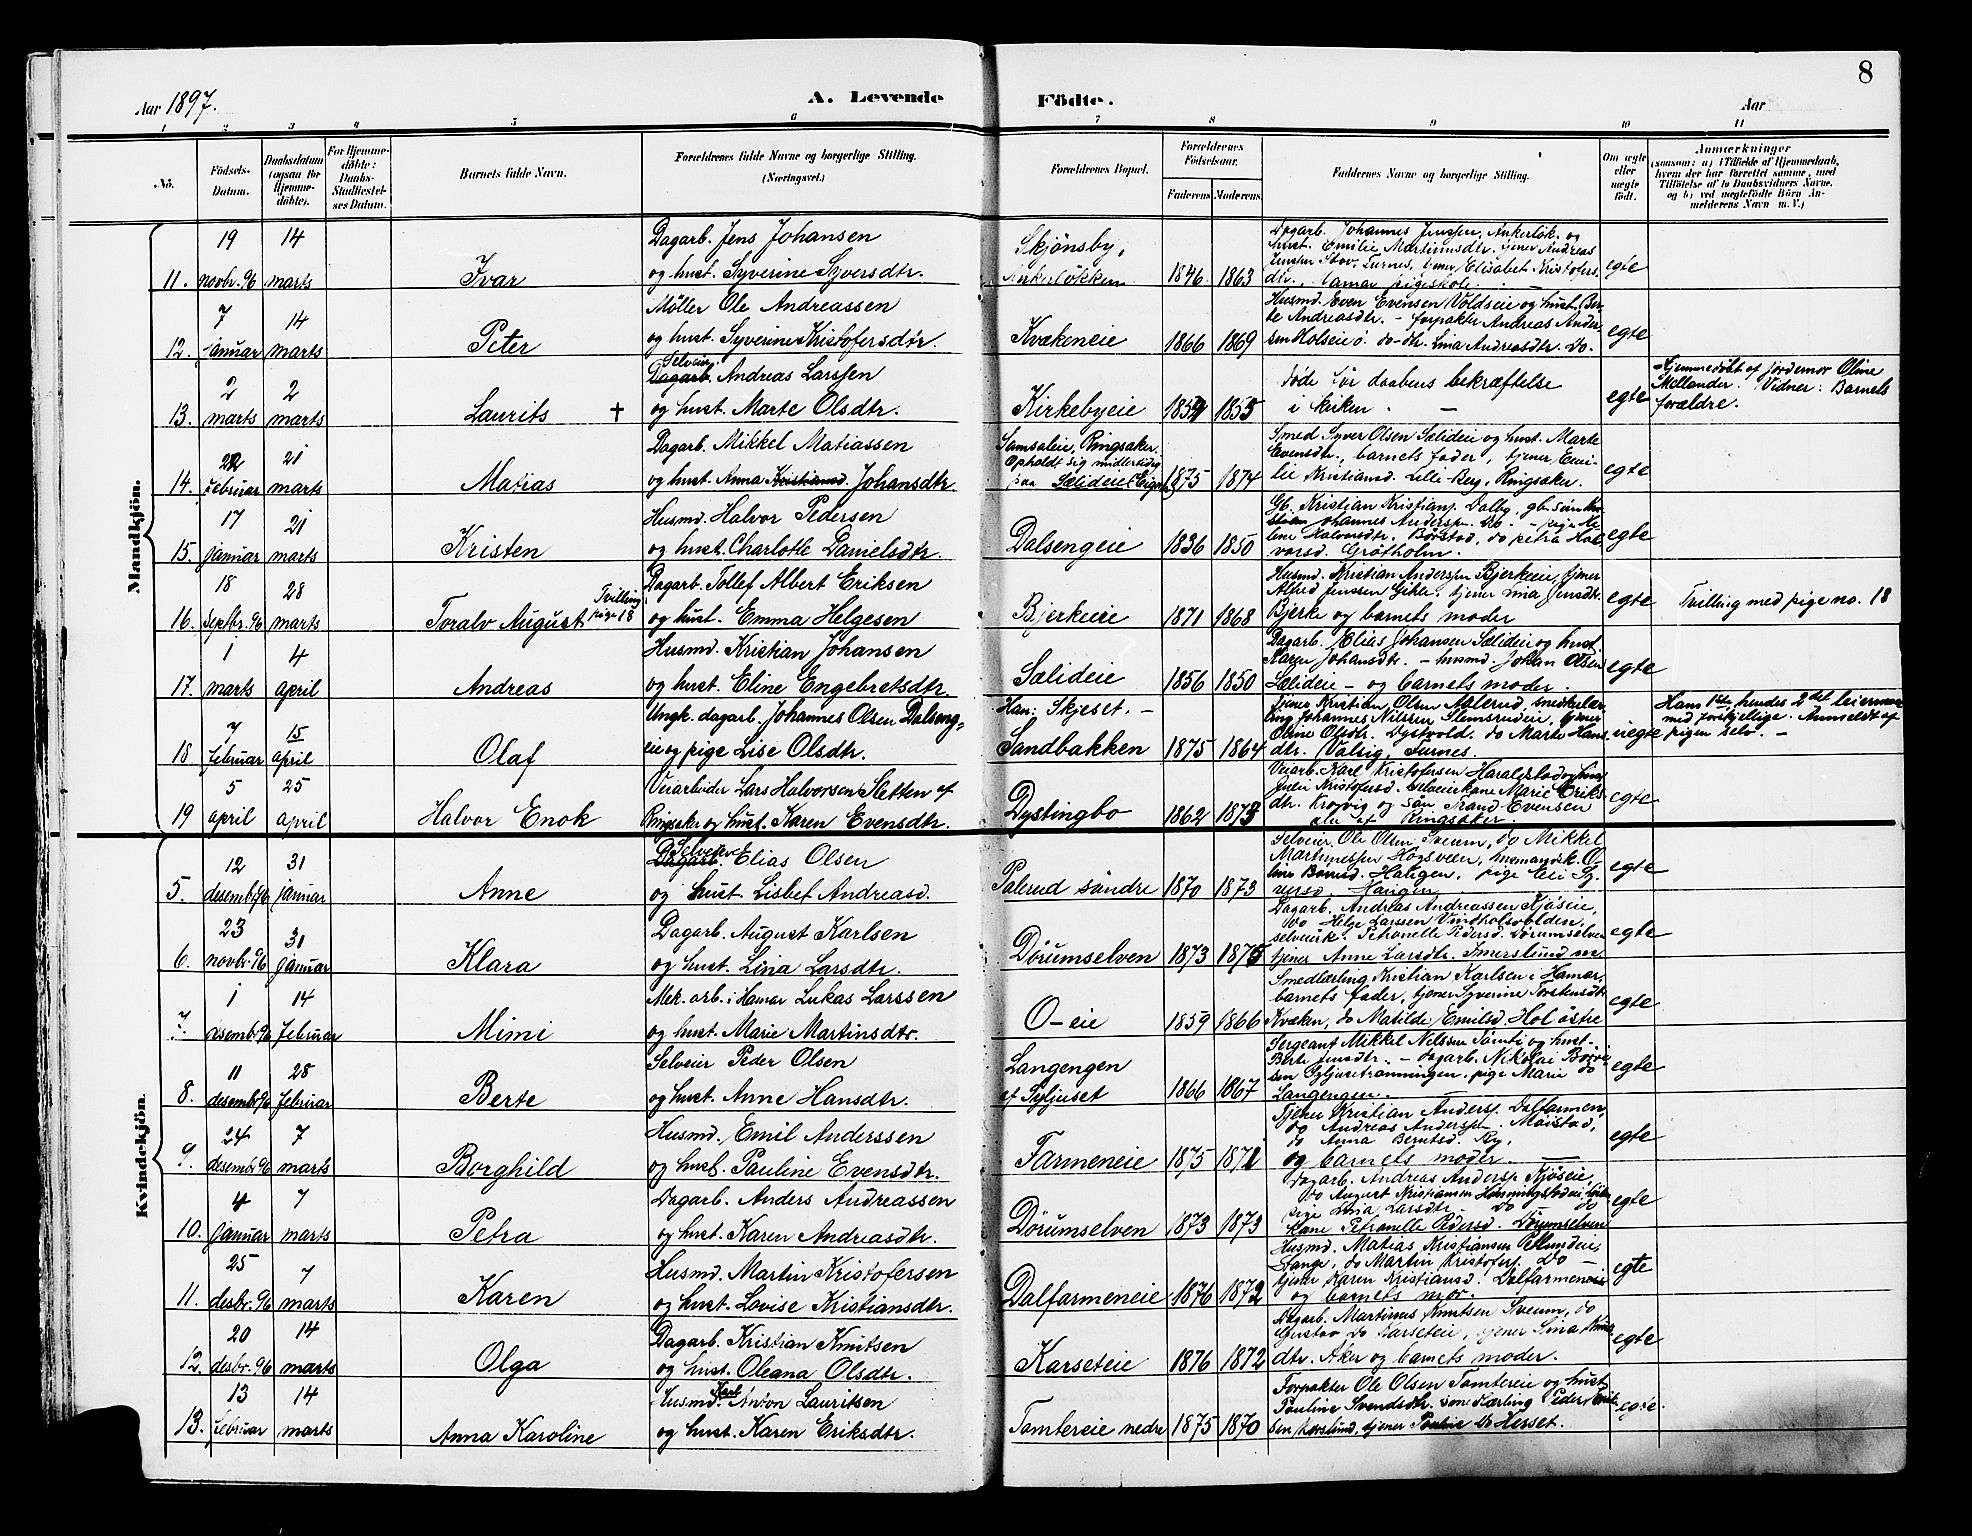 8
Aar 1897. A. Levende Födte. Aar
1 2 3 4 5 6 7 8 9 10 11
No. Födsels-Datum. Daabsdatum (ogsaa for Hjemmedöbte). For Hjemmedöbte: Daabs-Stadfæstelses Datum. Barnets fulde Navn. Forældrenes fulde Navne og borgerlige Stilling. (Næringsvei.) Forældrenes Bopæl. Forældrenes Födselsaar. Faderens Moderens Faddernes Navne og borgerlige Stilling. Om ægte eller uægte födt. Anmærkninger (saasom: a) i Tilfælde af Hjemmedaab, hvem der har forrettet samme, med Tilföielse af to Daabsvidners Navne, og b) ved uægtefödte Börn Anmelderens Navn m. V.)
Mandkjön.
11. 19 novbr. 96 14 marts Ivar Dagarb. Jens Johansen
og hust. Syverine Syversdtr. Skjönsby, Ankerløkken 1846 1863 Dagarb. Johannes Jenssen, Ankerløk. og
hust. Emilie Martinusdtr. tjener Andreas
Jenssen Stov, Furnes, tjener Elisabet Kristofers
dtr., Hamar pigeskole. egte
12. 7 januar 14 marts Peter Möller Ole Andreassen
og hust. Syverine Kristofersdtr. Kvækeneie 1866 1869 Husmd. Even Evensen Voldseie og hust. Ber-
te Andreasdtr. – forpakter Andreas Ander-
sen Holseie ö. do – dtr. Lina Andreasdtr. Do. egte
13. 2 marts 2 marts Laurits + Selveier Dagarb. Andreas Larssen
og hust. Marte Olsdtr. Kirkebyeie 1854 1855 Døde før daabens bekræftelse
i kirken. – egte Hjemmedöbt af jordemor Oline
Mellander. Vidner: Barnets
forældre.
14. 22 februar 21 marts Matias Dagarb. Mikkel Matiassen
og hust. Anna Kristiansd. Johansdtr. Samsaleie, Ringsaker.
Opholdt sig midlertidig
paa Sælideie 1875 1874 Smed Syver Olsen Sælideie og hust. Marte
Evensdtr., barnets fader, tjener Emi-
lie Kristiansd. Lille-Berg, Ringsaker. egte
15. 17 januar 21 marts Kristen Husmd. Halvor Pedersen
og hust. Charlotte Danielsdtr. Dalsengeie 1836 1850 Gb. Kristian Kristians. Dalby, gb.
Johannes Anderss. Db. – pige
Halvorsdtr. Børstad, do Petra Hal
vorsd. Grøtholm. egte
16. 18 septbr. 96 28 marts Toralv August Tvilling pige 18 Dagarb. Tollef Albert Eriksen
og hust. Emma Helgesen Bjerkeeie 1871 1868 Husmd. Kristian Anderssen Bjerkeeie, tjener
Alfred Jenssen Gjkle, tjener Lina Jensdtr.
Bjerke og barnets moder egte Tvilling med pige no. 18
17. 1 marts 4 april Andreas Husmd. Kristian Johansen
og hust. Eline Engebretsdtr. Sælideie 1856 1850 Dagarb. Elias Johansen Sælideie og hust.
Karen Johansdtr. – husmd. Johan Olsen
Sælideie – og barnets moder. egte
18 7 februar 15 april Olaf Ungk. dagarb. Johannes Olsen Dalseng-
eie og pige Lise Olsdtr. Han: Skjeset. –
Sandbakken 1875 1864 Tjener Kristian Olsen Aalerud, snedkerlær-
ling Johannes Nilssen Slemsrudeie, tjener
Oline Olsdtr. Dystvold, do Marte Hans
dtr. Valsig, Furnes. uegte Hans 1ste, hendes 2det leiermaal
med forskjellige. Anmeldt af
pigen selv. –
19 5 april 25 april Halvor Enok Veiarbeider Lars Halvorsen Sletten af
Ringsaker og hust. Karen Evensdtr. Dystingbo 1862 1873 Veiarb. Karl Kristofersen Haraldstad og hust
Julie Kristofersd. selveierkone Marie Eriks-
dtr. Krogvig og søn Trand Evensen
alle af Ringsaker. egte
Kvindekjön.
5. 12 desembr 96 31 januar Anne Selveier Dagarb. Elias Olsen
og hust. Lisbet Andreasd. Palerud söndre 1870 1873 Selveier Ole Olsen Sveum, do Mikkel
Martinessen Høgsveen, husmandsk. O-
line Børresd. Haugen, pige Eli Sy-
versd. Haugen egte
6. 23 novbr. 96 31 januar Klara Dagarb. August Karlsen
og hust. Lina Larsdtr. Dørumselven 1873 1875 Dagarb. Andreas Andreassen Kjøseie,
do Helge Larssen Vindholvolden,
selveierk. Petronelle Pedersd. Dørumselven
tjener Anne Larsdtr. Imerslund egte
7. 1 desembr 96 14 februar Mimi Mek. arb. i Hamar Lukas Larssen
og hust. Marie Martinsdtr. O-eie 1859 1866 Smedlærling Kristian Karlsen i Hamar,
barnets fader, tjener Syverine Torstensdtr
Kvæken, do Matilde Emilsd. Hol østre egte
8. 11 desembr 96 28 februar Berte Selveier Peder Olsen
og hust. Anne Hansdtr. Langengen
af Syljuset 1866 1867 Sergeant Mikkel Nilssen Tomti og hust.
Berte Jensdtr. – dagarb. Nikolai Børre
sen Syljusetrønningen, pige Marie do
Langengen. egte
9. 24 desembr 96 7 marts Borghild Husmd. Emil Anderssen
og hust. Pauline Evensdtr. Farmeneie 1875 1871 Tjener Kristian Anderss. Dalfarmen,
do Andreas Anderss. Moistad,
do Anna Berntsd. Ry,
og barnets moder. – egte
10. 4 januar 7 marts Petra Dagarb. Anders Andreassen
og hust. Karen Andreasdtr. Dørumselven 1873 1873 Dagarb. Andreas Anderss Kjøseie,
do August Kristiansen Henningstadeie
pige Lina Larsdtr. Do do
kone Petronelle Pedersd. Dørumselven egte
11. 25 desbr. 96 7 marts Karen Husmd. Martin Kristofersen
og hust. Lovise Kristiansdtr. Dalfarmeneie 1876 1872 Husmd. Matias Kristiansen Pellundeie,
Stange, do Martin Kristofers. Do –
tjener Karen Kristiansd. Dalfarmeneie
og barnets mor. egte
12. 20 desbr. 96 14 marts Olga Dagarb. Kristian Knutsen
og hust. Oleana Olsdtr. Karseteie 1876 1872 Dagarb. Martinus Knutsen Sveum, do
Gustav Do Karseteie, tjener Lina Knuts
dtr. Aker og barnets moder. egte
13. 13 februar 14 marts Anna Karoline Husmd. Karl Anton Lauritsen
og hust. Karen Eriksdtr. Tomtereie nedre 1875 1870 Forpakter Ole Olsen Tomtereie og hust
Pauline Svendsdtr. smedlærling Peder Erik-
sen Korslund, tjener Pauline Do Herset. egte